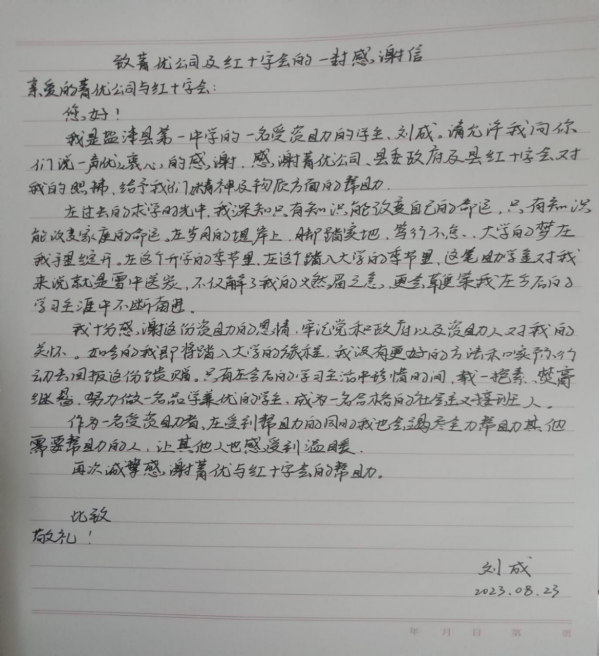 致菁优公司及红十字会的一封感谢信
亲爱的菁优公司与红十字会：
您好！
我是盐津县第一中学的一名受资助的学生，刘成。请允许我向你
们说一声优衷心的感谢，感谢菁优公司、县委政府及县红十字会对
我的照拂，给予我们精神及物质方面的帮助。
在过去的求学时光中，我深知只有知识能改变自己的命运，只有知识
能改变家庭的命运。在岁月的堤岸上，脚踏实地，笃行不怠，大学的梦在
我手里绽开。在这个开学的季节里，在这个踏入大学的季节里，这笔助学金对我
来说就是雪中送炭，不仅解了我的燃眉之急，更会鞭策我在今后的
学习生涯中不断奋进。
我十分感谢这份资助的恩情，牢记党和政府以及资助人对我的
关怀。如今的我即将踏入大学的旅程，我没有更好的方法来
动去回报这份馈赠。只有在今后的学习生活中珍惜时间，焚膏
继晷，努力做一名品学兼优的学生，成为一名合格的社会主义接班人。
作为一名受资助者，在受到帮助的同时我也会竭尽全力帮助其他
需要帮助的人，让其他人也感受到温暖。
再次诚挚感谢菁优与红十字会的帮助。
此致
敬礼！
刘成
2023.08.23
年 月 日 第 页